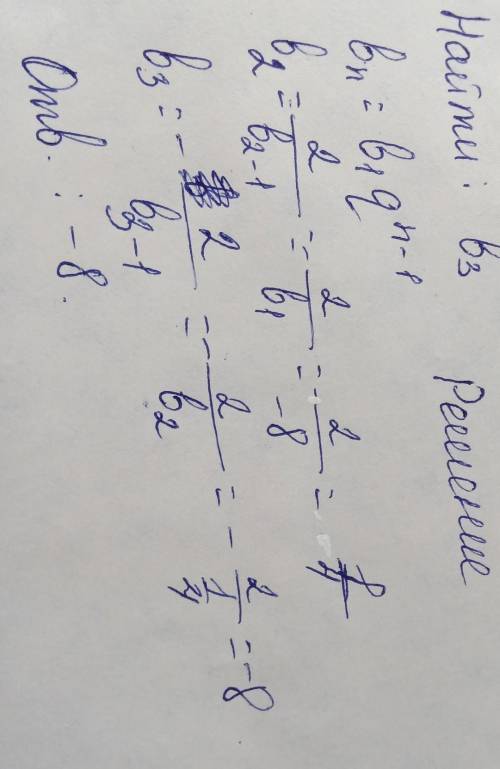 Найти: b₃ Решение
bₙ = b₁ qⁿ⁻¹
b₂ = 2/b₂₋₁ = 2/b₁ = 2/-8 = 1/4
b₃ = - 2/b₃₋₁ = - 2/b₂ = - 2/(1/4) = -8
Отв.: -8.